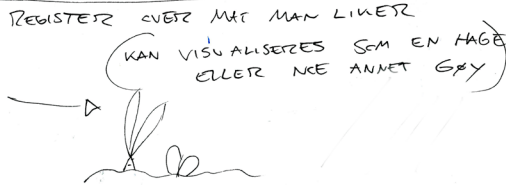 REGISTER OVER MAT MAN LIKER
(KAN VISUALISERES SOM EN HAGE
ELLER NOE ANNET GØY)